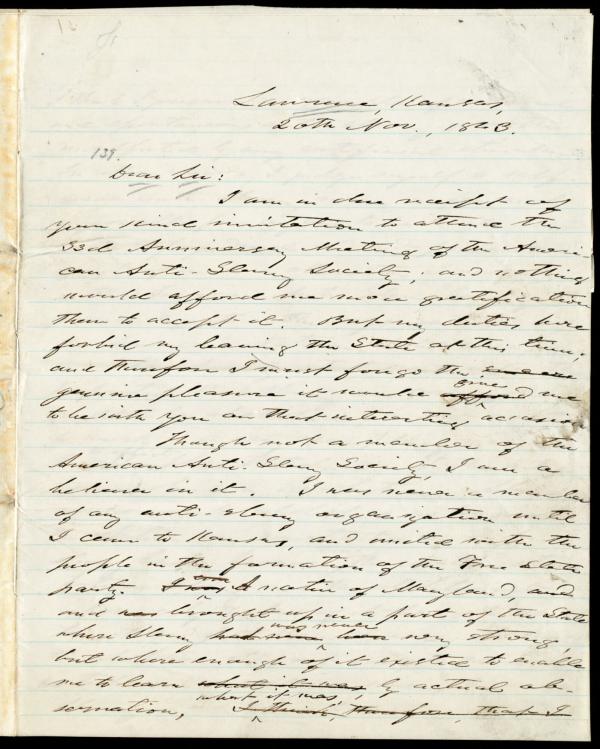 Lawrence, Kansas,
20th Nov., 1863.
139.
Dear Sir:
I am in due receipt of
your kind invitation to attend the
33d Anniversary Meeting of the Ameri-
can Anti-Slavery Society, and nothing
would afford me more gratification
than to accept it. But my duties here
forbid my leaving the State at this time,
and therefore I must forego the
give
genuine pleasure it would afford me
to be with you on that interesting occasion.
Though not a member of the
American Anti-Slavery Society, I am a
believer in it. I was never a member
of any anti-slavery organization until
I came to Kansas, and united with the
people in the formation of the Free State
party. I was A native of Maryland, and
and was brought up in a part of the State
was never
where Slavery had never been very strong,
but where enough of it existed to enable
me to learn what it was by actual ob-
what it was,
servation, I think, therefore, that I